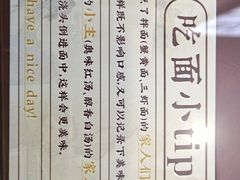 吃面小tip
了拌面(蟹黄面、三虾面)的家人们
样既不影响口感,又可以记录下美味
的小主,味红汤、醇香白汤)的家
浇头倒进面中,这样会更美味。
have a nice day!